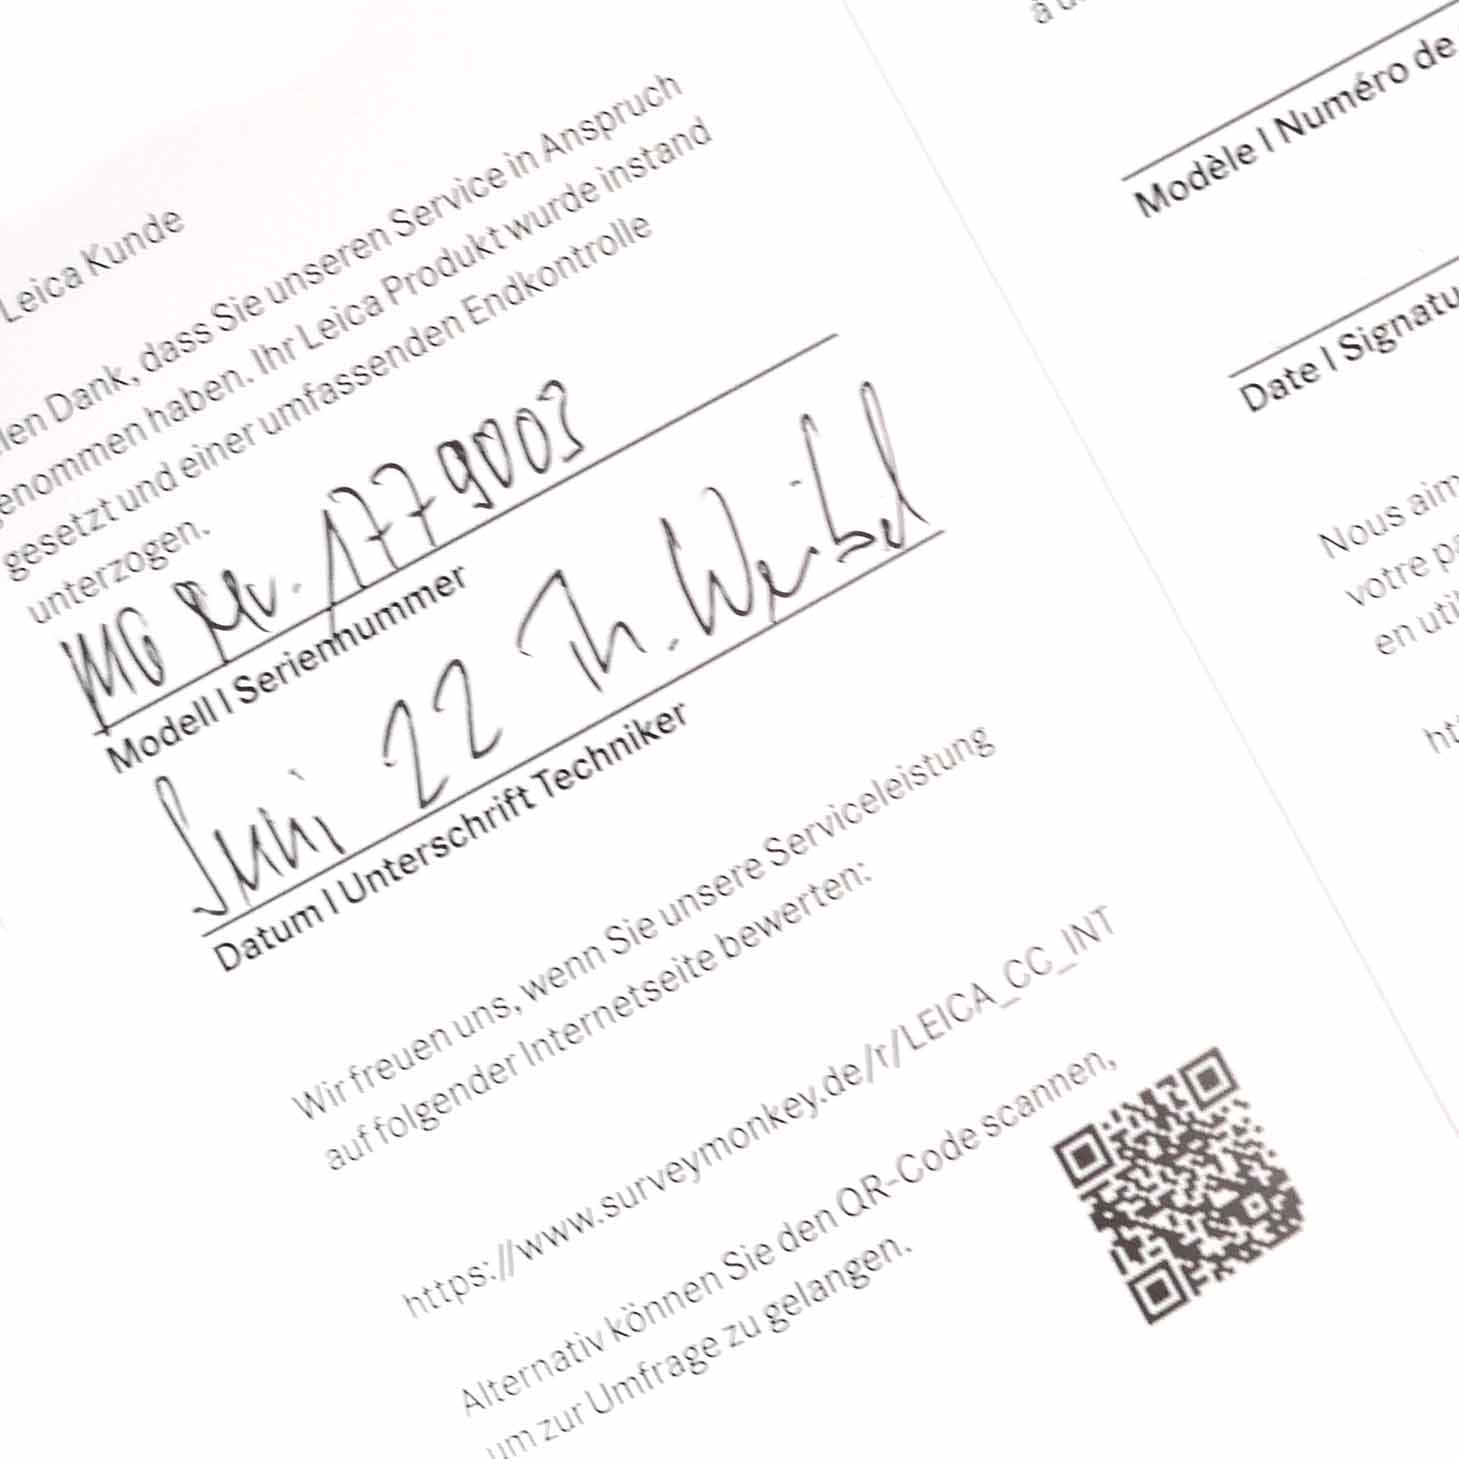 Leica Kunde
len Dank, dass Sie unseren Service in Anspruch
genommen haben. Ihr Leica Produkt wurde instand
gesetzt und einer umfassenden Endkontrolle
unterzogen.
M6 Nr. 1779003
Modell | Seriennummer
Juni 22 Th. Weibel
Datum | Unterschrift Techniker
Wir freuen uns, wenn Sie unsere Serviceleistung
auf folgender Internetseite bewerten:
https://www.surveymonkey.de/r/LEICA_CC_INT
Alternativ können Sie den QR-Code scannen,
um zur Umfrage zu gelangen.
Modèle | Numéro de
Date | Signatu
Nous aim
votre pa
en util
ht